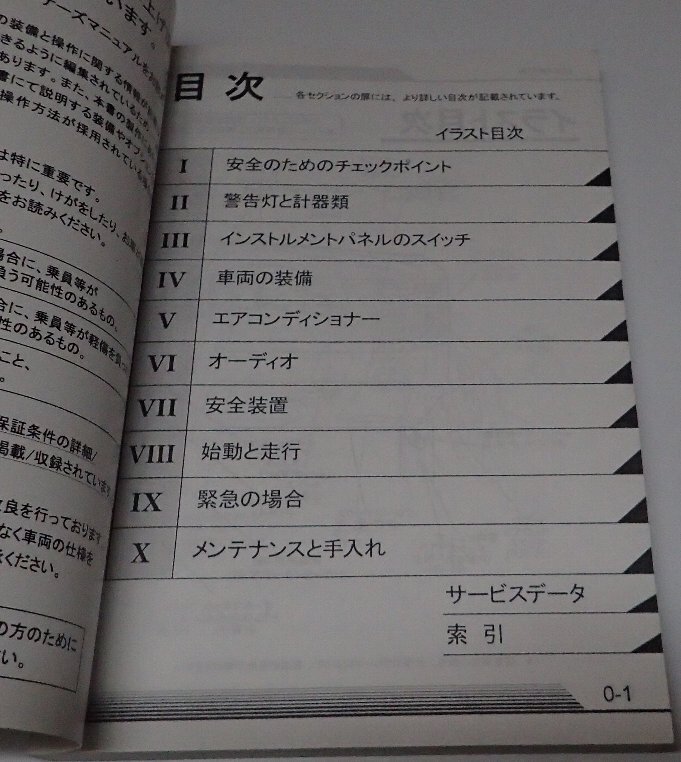 上げ
います。
ナーズマニュアルを
の装備と操作に関する情報が
きるように編集されているため
あります。また、本書の製作に
書にて説明する装備やオプション
操作方法が採用されている場
は特に重要です。
ったり、けがをしたり、お車に
をお読みください。
場合に、乗員等が
負う可能性のあるもの。
合に、乗員等が軽傷を負っ
性のあるもの。
こと、
保証条件の詳細/
掲載/収録されています
改良を行っております
なく車両の仕様を
ください。
の方のために
い。
目次
各セクションの扉には、より詳しい目次が記載されています。
イラスト目次
I 安全のためのチェックポイント
II 警告灯と計器類
III インストルメントパネルのスイッチ
IV 車両の装備
V エアコンディショナー
VI オーディオ
VII 安全装置
VIII 始動と走行
IX 緊急の場合
X メンテナンスと手入れ
サービスデータ
索 引
0-1